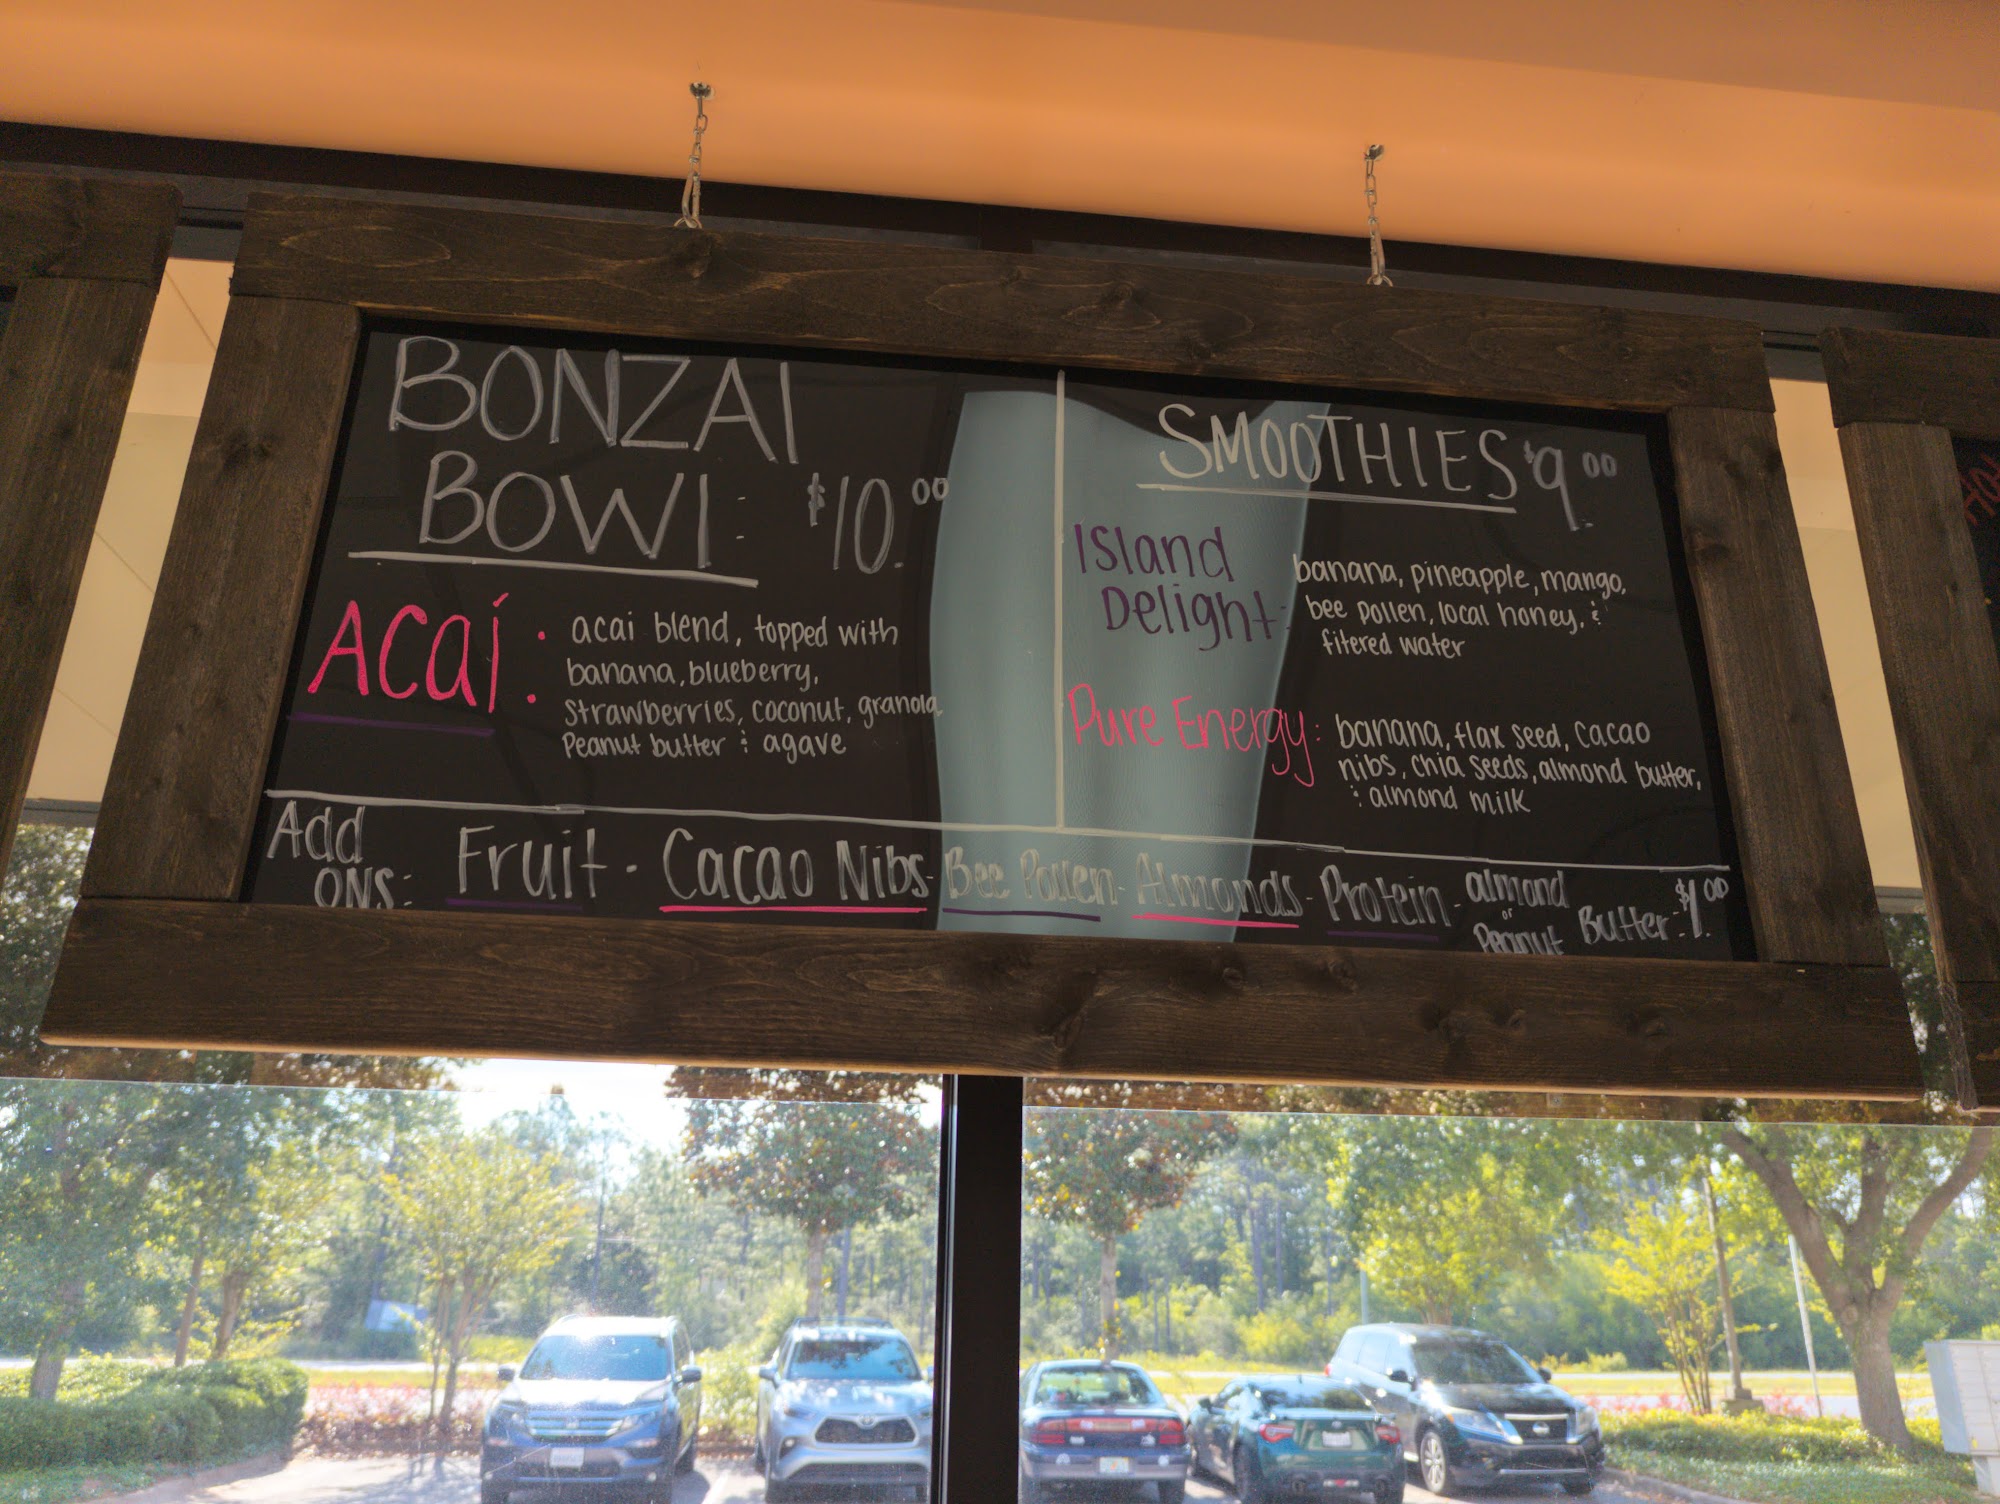 BONZAI
BOWl: $10.00
ACAí: acai blend, topped with
banana, blueberry,
strawberries, coconut, granola,
Peanut butter & agave
SMOOTHIES $9.00
Island
Delight:
banana, pineapple, mango,
bee pollen, local honey, &
fitered water
Pure Energy: banana, flax seed, cacao
nibs, chia seeds, almond butter,
& almond milk
Add
ONS: Fruit - Cacao Nibs - Bee Pollen - Almonds - Protein - almond or Peanut Butter - $1.00
HOH